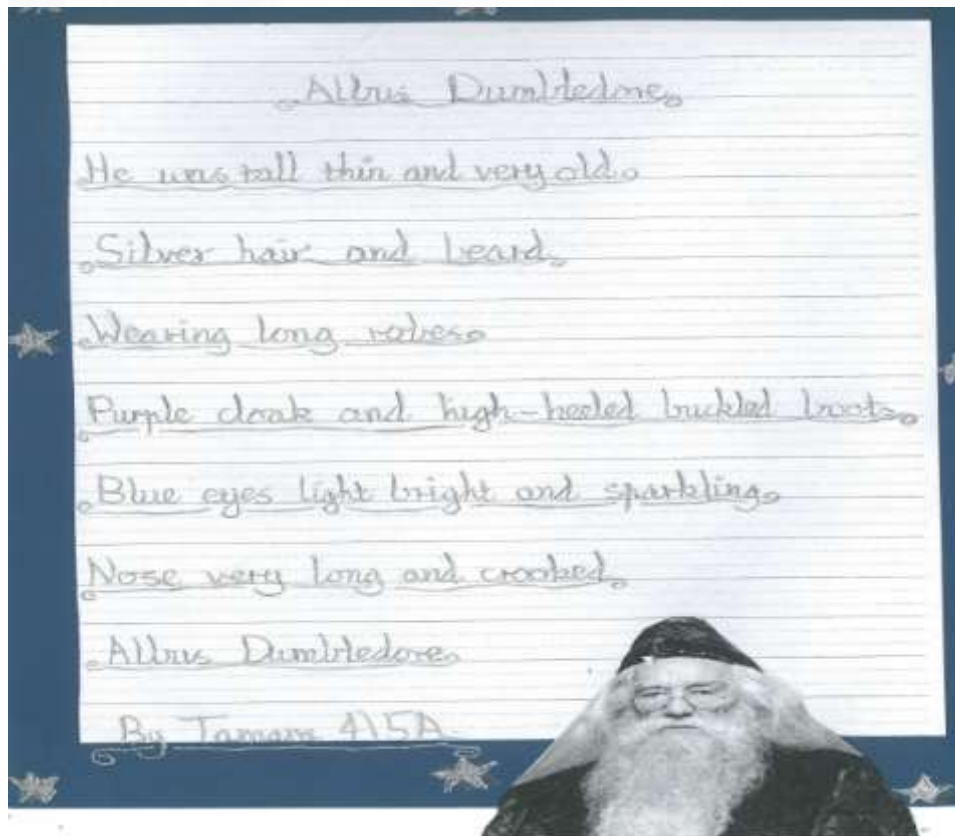 Albus Dumbledore
He was tall thin and very old.
Silver hair and beard.
Wearing long robes.
Purple cloak and high-heeled buckled boots.
Blue eyes light bright and sparkling.
Nose very long and crooked.
Albus Dumbledore.
By Tamara 4\5A